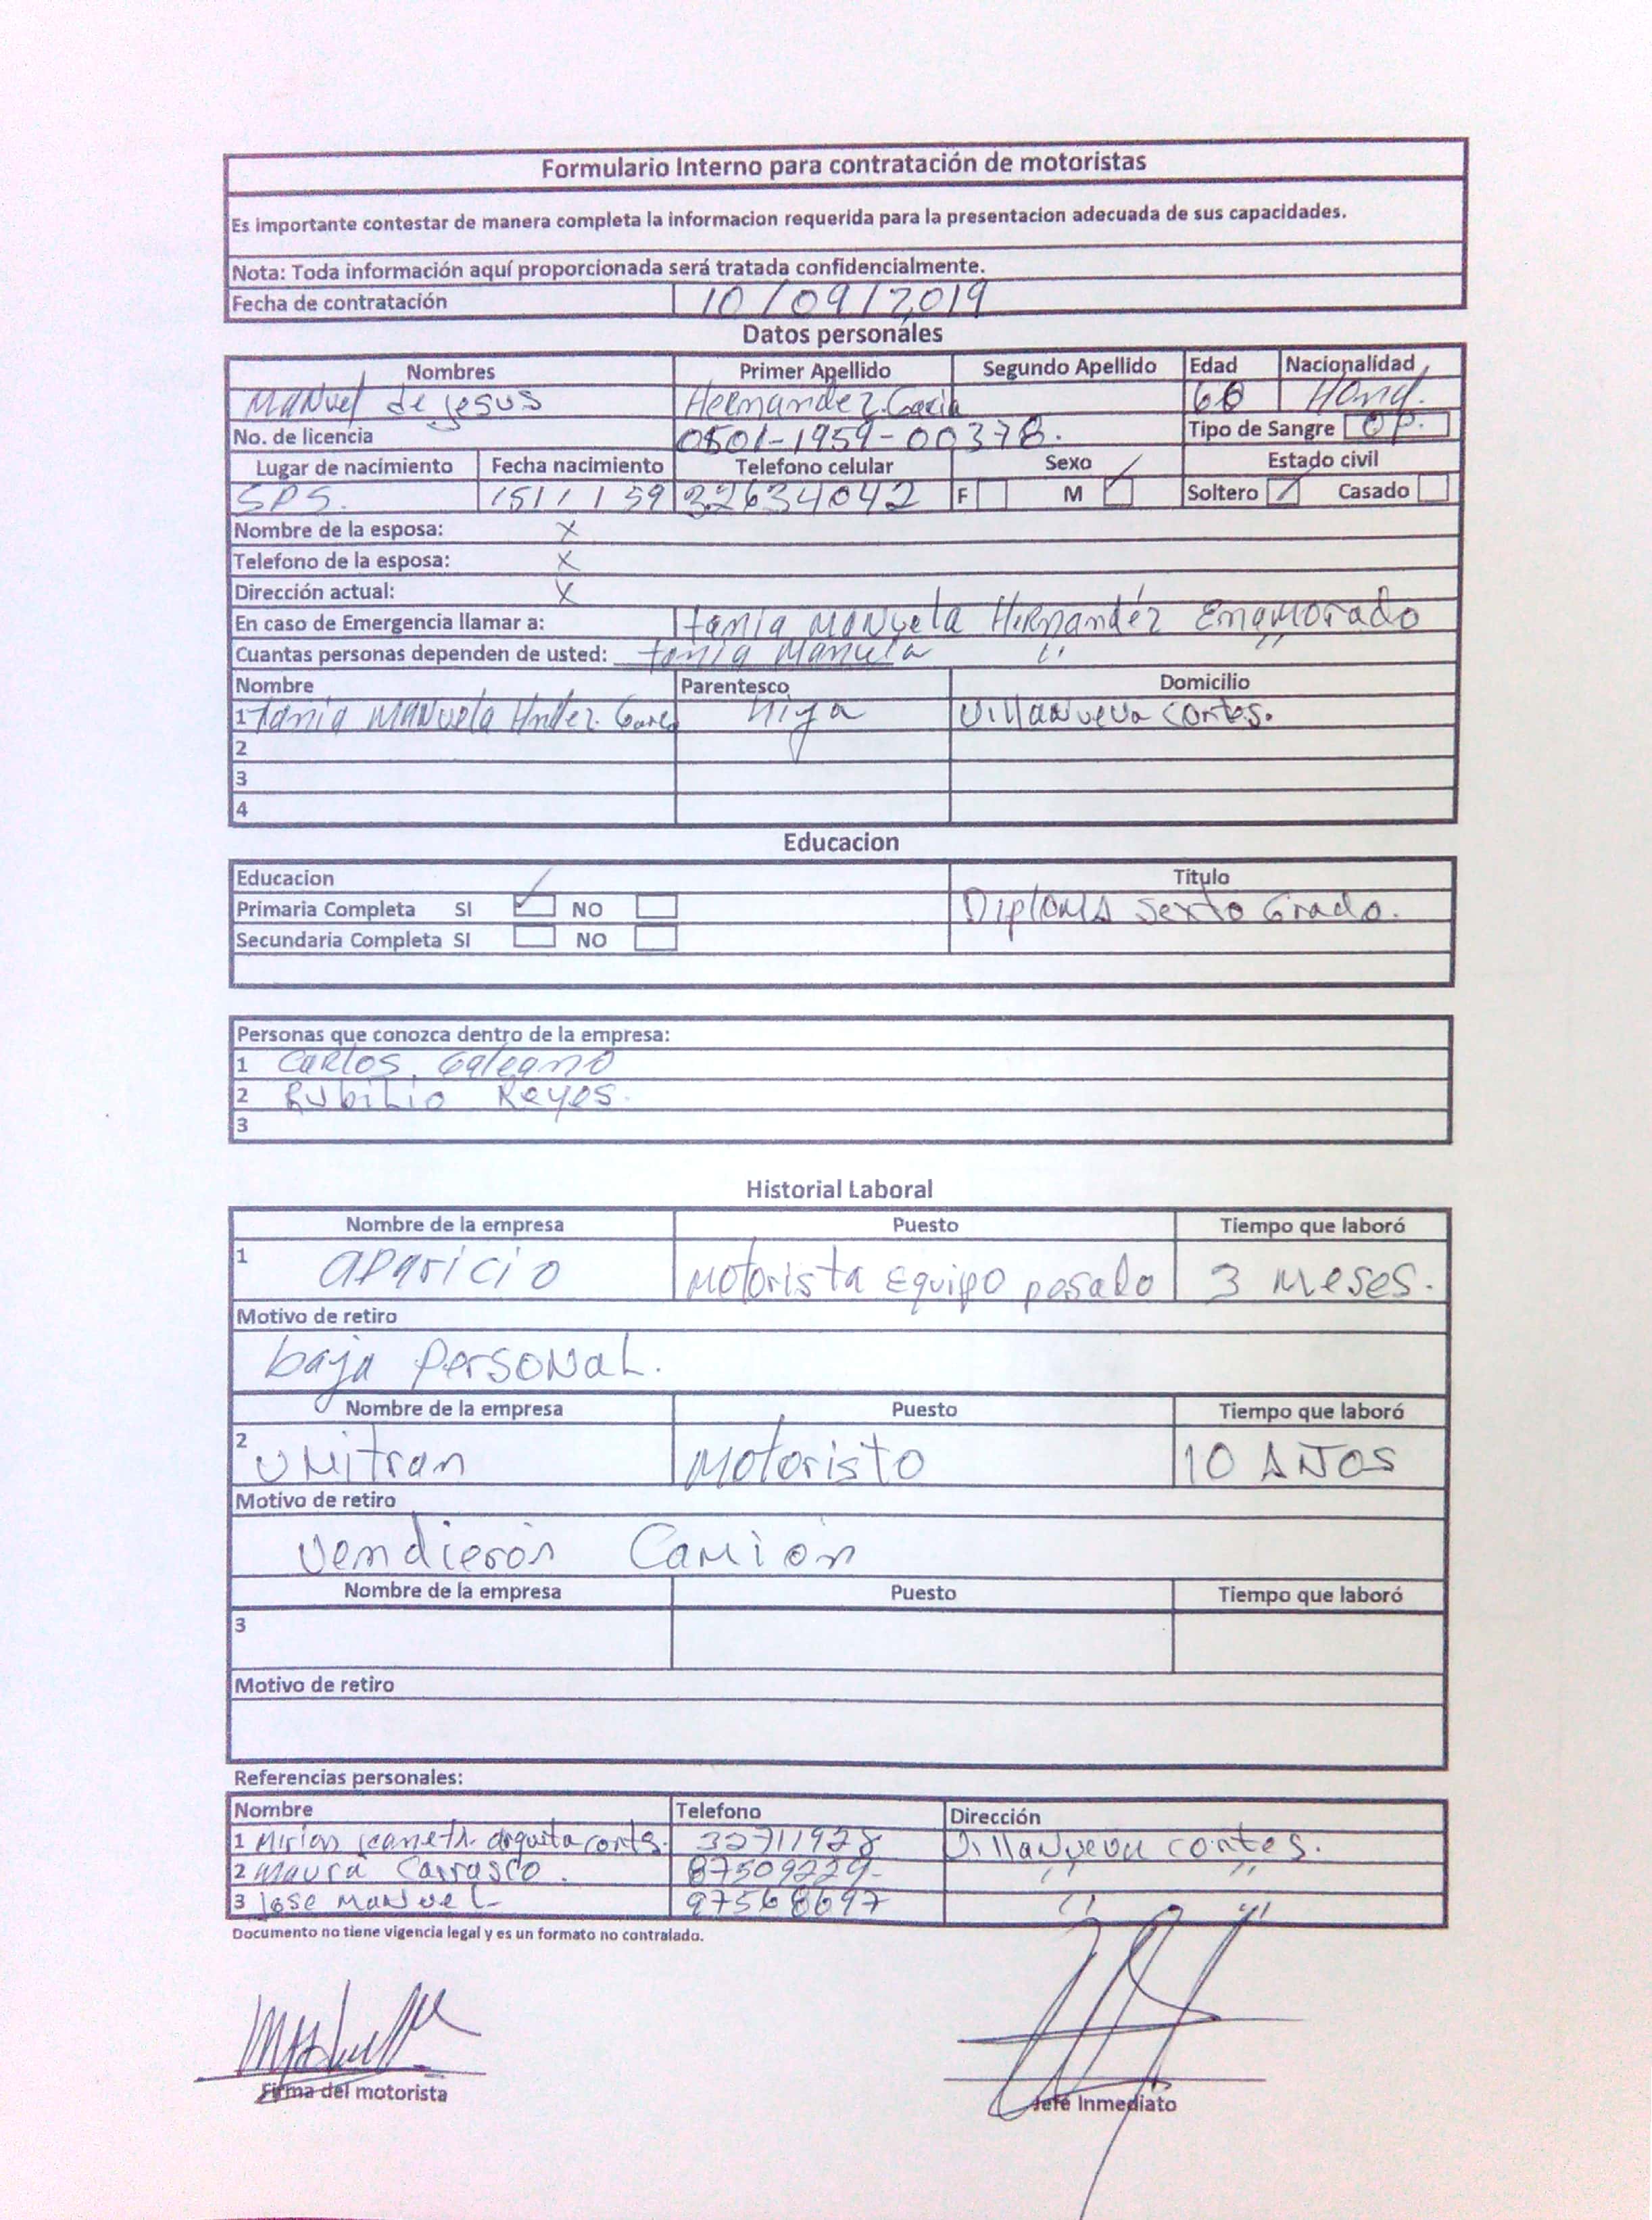 Formulario Interno para contratación de motoristas
Es importante contestar de manera completa la informacion requerida para la presentacion adecuada de sus capacidades.
Nota: Toda información aquí proporcionada será tratada confidencialmente.
Fecha de contratación 10/09/2019
Datos personales
Nombres Primer Apellido Segundo Apellido Edad Nacionalidad
Manuel de jesus Hernandez Garcia 60 Hond.
No. de licencia 0501-1959-00378. Tipo de Sangre OP.
Lugar de nacimiento Fecha nacimiento Telefono celular Sexo Estado civil
SPS. 15/1/59 32634042 F M Soltero Casado
Nombre de la esposa: X
Telefono de la esposa: X
Dirección actual: X
En caso de Emergencia llamar a: tania Manuela Hernandéz Enamorado
Cuantas personas dependen de usted: tania Manuela " "
Nombre Parentesco Domicilio
1 tania Manuela Hndez. hija Villanueva Cortes.
2
3
4
Educacion
Educacion Titulo
Primaria Completa SI NO Diploma Sexto Grado.
Secundaria Completa SI NO
Personas que conozca dentro de la empresa:
1 Carlos Galeano
2 Rubilio Reyes.
3
Historial Laboral
Nombre de la empresa Puesto Tiempo que laboró
1 aparicio Motorista Equipo pesado 3 meses.
Motivo de retiro
baja personal.
Nombre de la empresa Puesto Tiempo que laboró
2 Unitran Motoristo 10 AÑOS
Motivo de retiro
Vendierón Camión
Nombre de la empresa Puesto Tiempo que laboró
3
Motivo de retiro
Referencias personales:
Nombre Telefono Dirección
1 Mirian 32711928 Villanueva Cortes.
2 Maura Carrasco. 87509229- " "
3 Jose Manuel 97568697 " "
Documento no tiene vigencia legal y es un formato no contralado.
Firma del motorista Jefe Inmediato